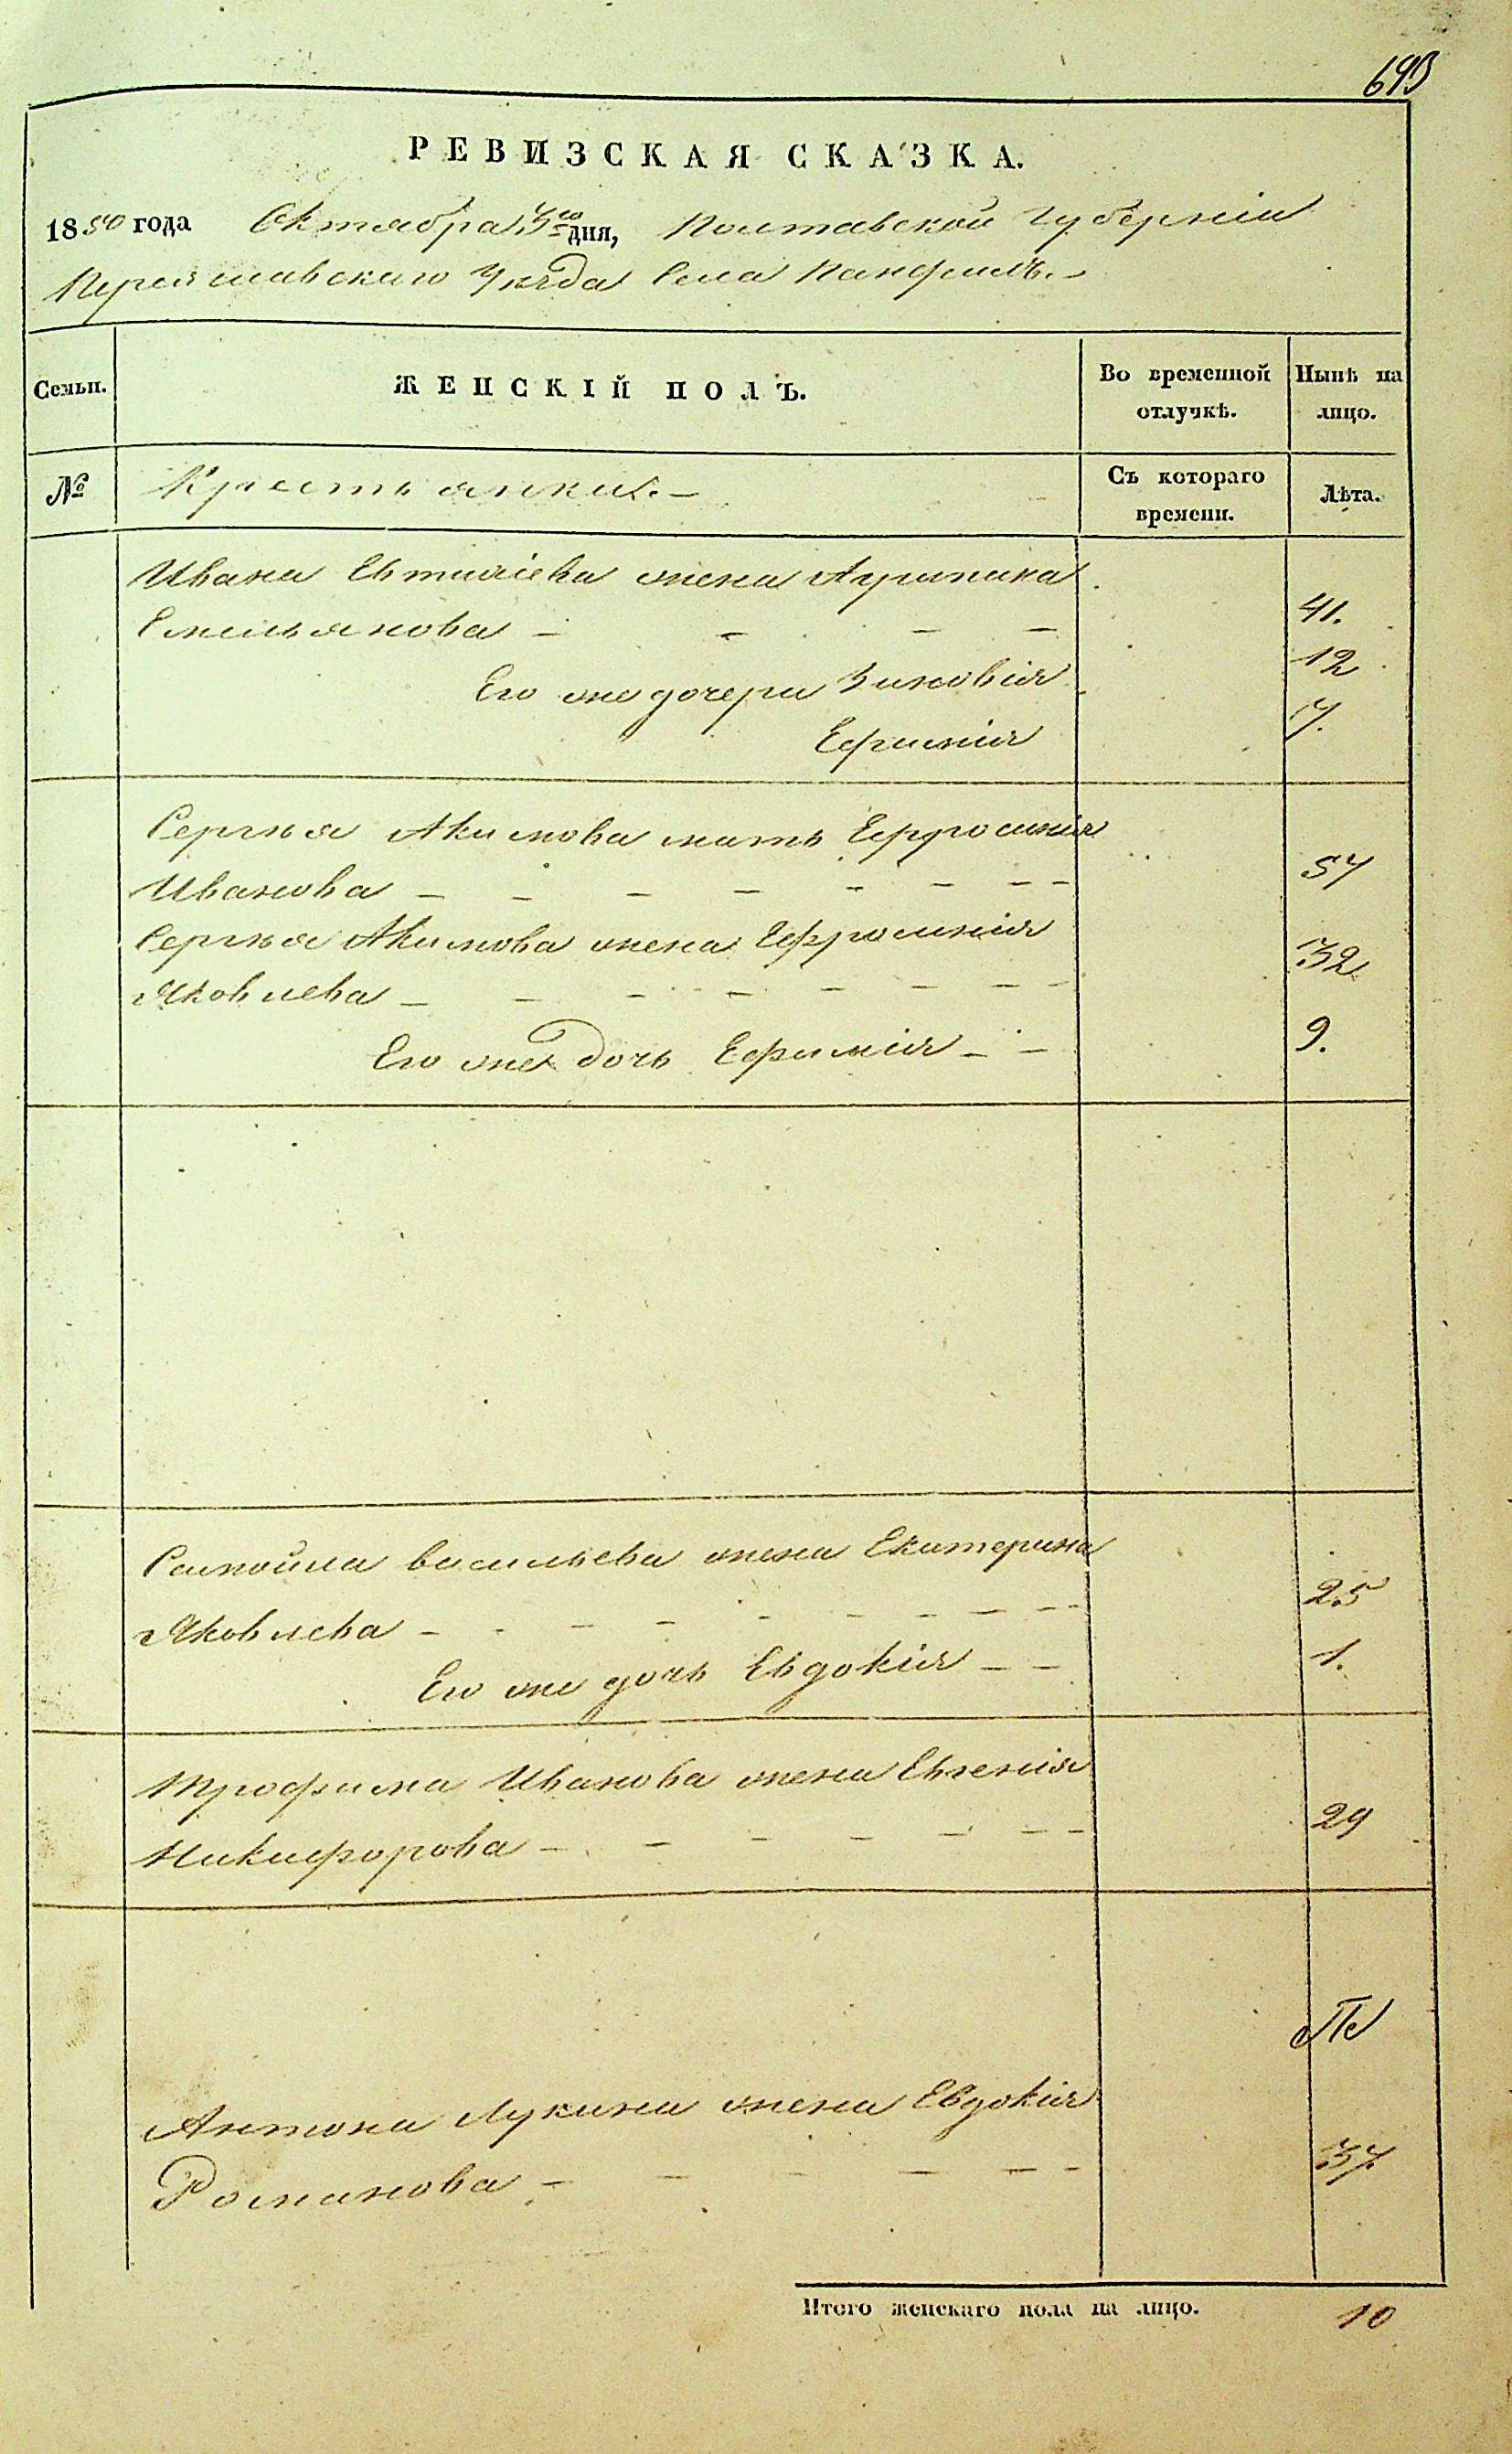 693
РЕВИЗСКАЯ СКАЗКА.
1850 года Октября 3го дня, Полтавской Губерніи
Переяславскаго Уезда Села Панфилъ.
Семьи. ЖЕНСКІЙ ПОЛЪ. Во временной отлучкѣ. Нынѣ на лицо.
№ Крестьянки. Съ котораго времени. Лѣта.
Ивана Евтихіева жена Агрипина
Емельянова 41.
Его же дочери Зиновія 12
Ефимія 7.
Сергѣя Акимова мать Ефросинія
Иванова 57
Сергѣя Акимова жена Ефросинія
Яковлева 32
Его же дочь Ефимія 9.
Самойла Васильева жена Екатерина
Яковлева 25
Его же дочь Евдокія 1.
Трофима Иванова жена Евгенія
Никифорова 29
Антона Лукина жена Евдокія
Романова 37.
Итого женскаго пола на лицо. 10